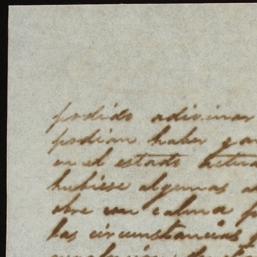 podido adivinar
podian haber
en el estado actua
hubiese algunas
obre con calma
las circunstancias